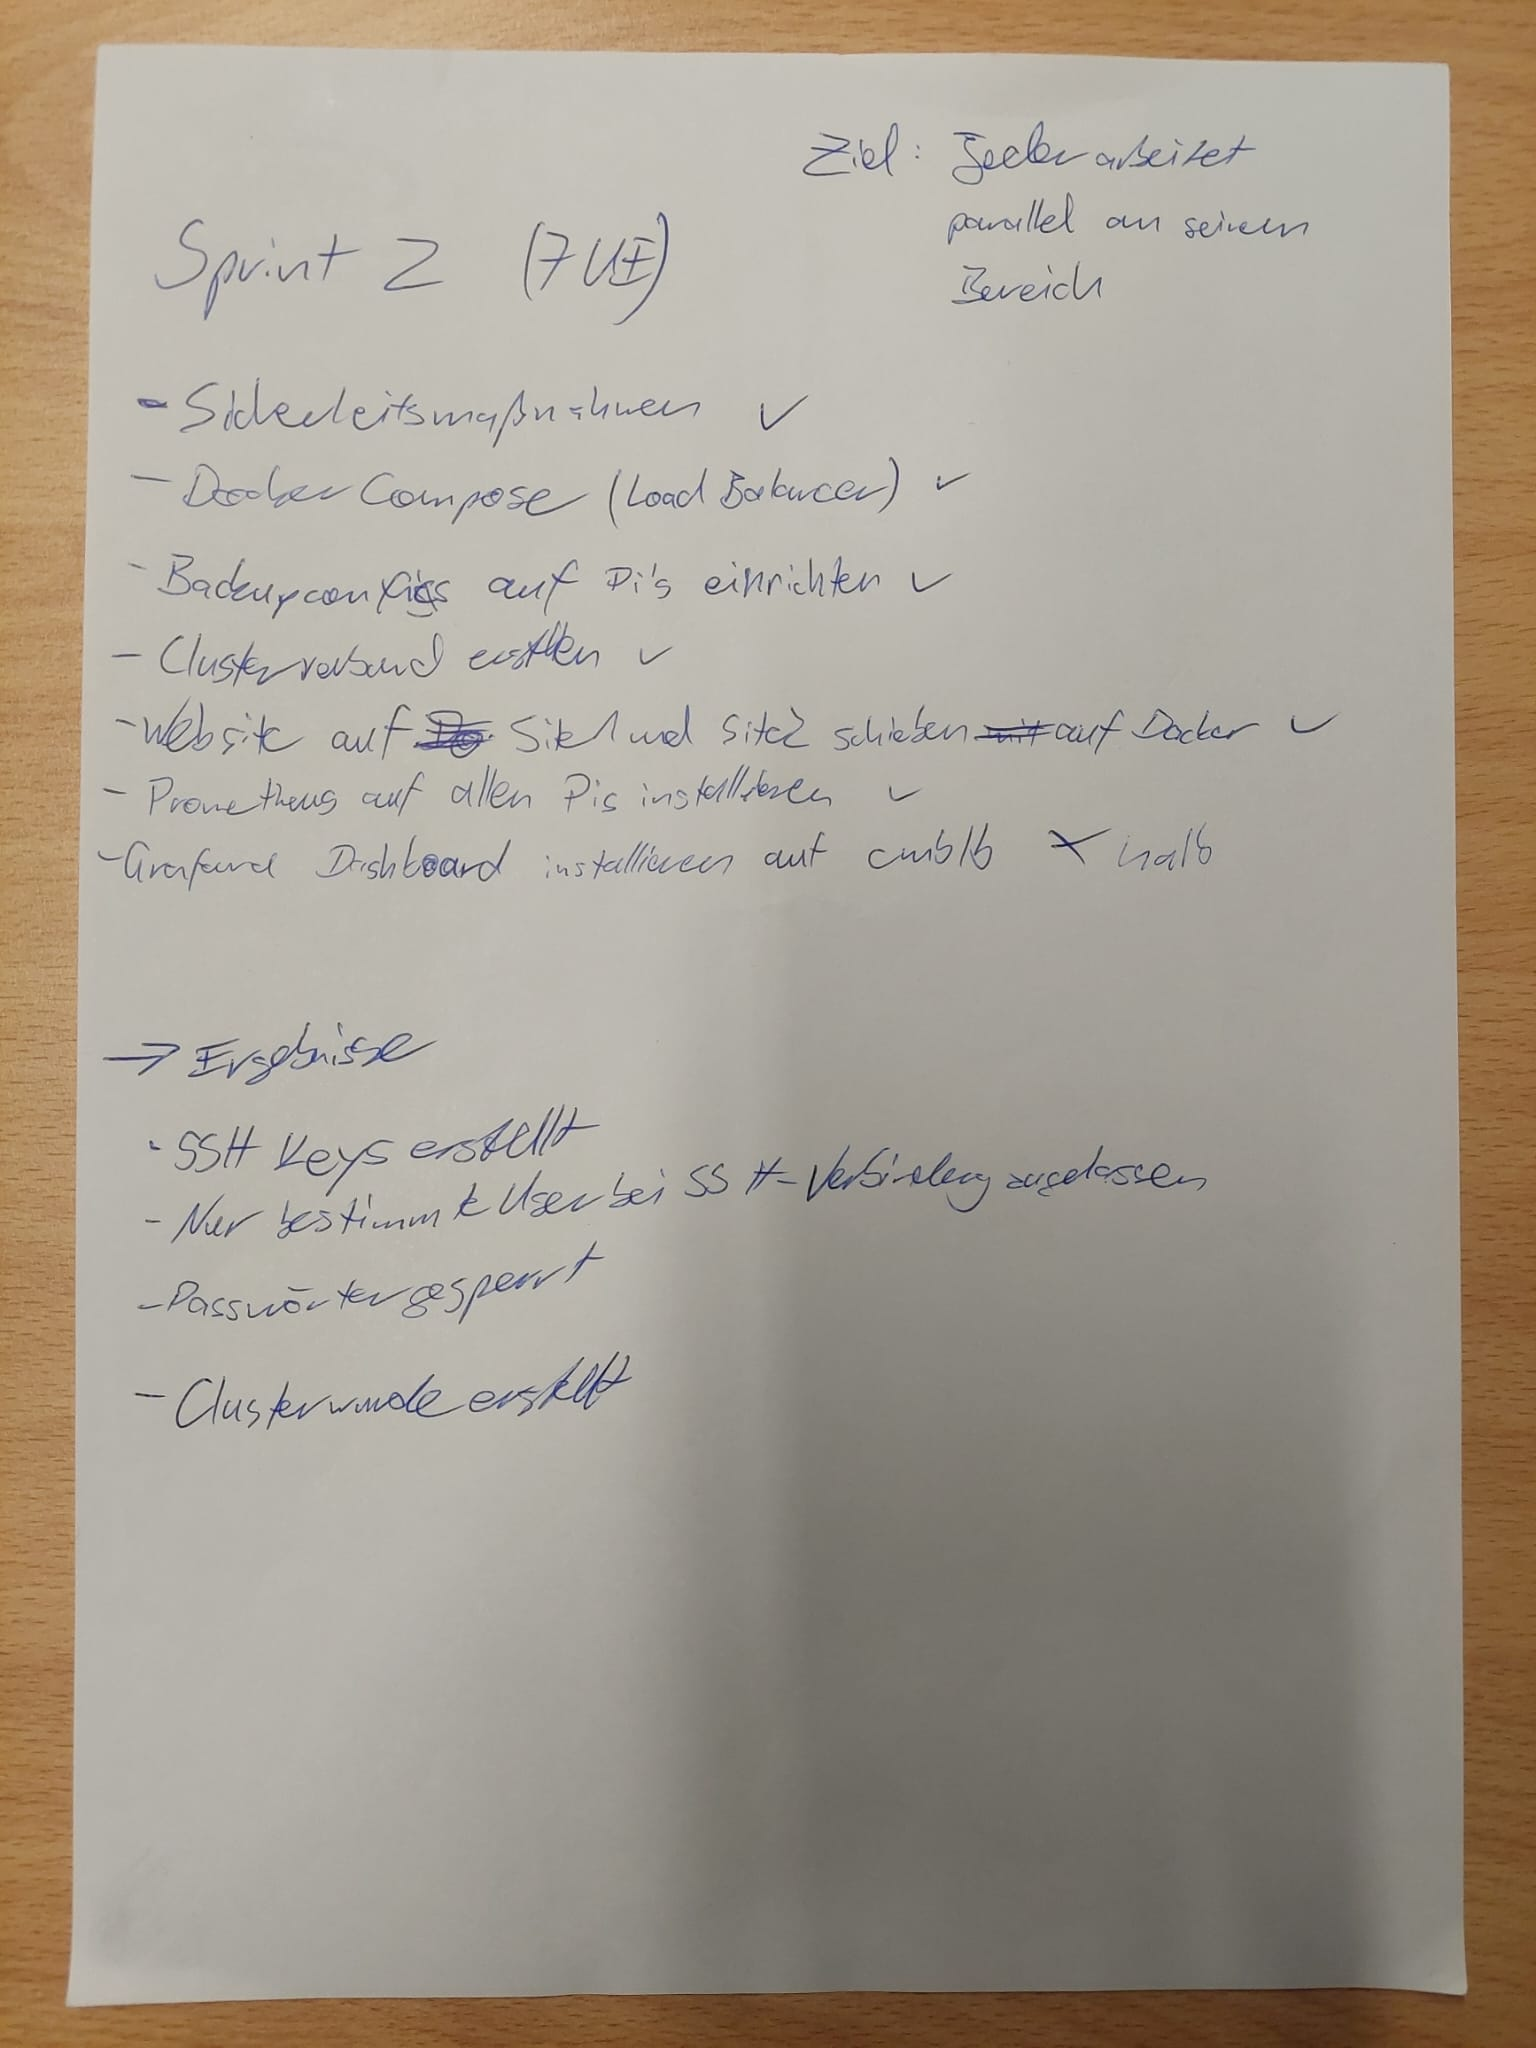 Ziel: Jeder arbeitet
parallel an seinem
Bereich
Sprint 2 (7 UE)
- Sicherheitsmaßnahmen ✓
- Docker Compose (Load Balancer) ✓
- Backupconfigs auf Pi's einrichten ✓
- Clusterverbund erstellen ✓
- Website auf Site1 und Site2 schieben mit auf Docker ✓
- Prometheus auf allen Pis installieren ✓
- Grafana Dashboard installieren auf cmblb X halb
→ Ergebnisse
- SSH Keys erstellt
- Nur bestimmte User bei SSH-Verbindung zugelassen
- Passwörter gesperrt
- Cluster wurde erstellt